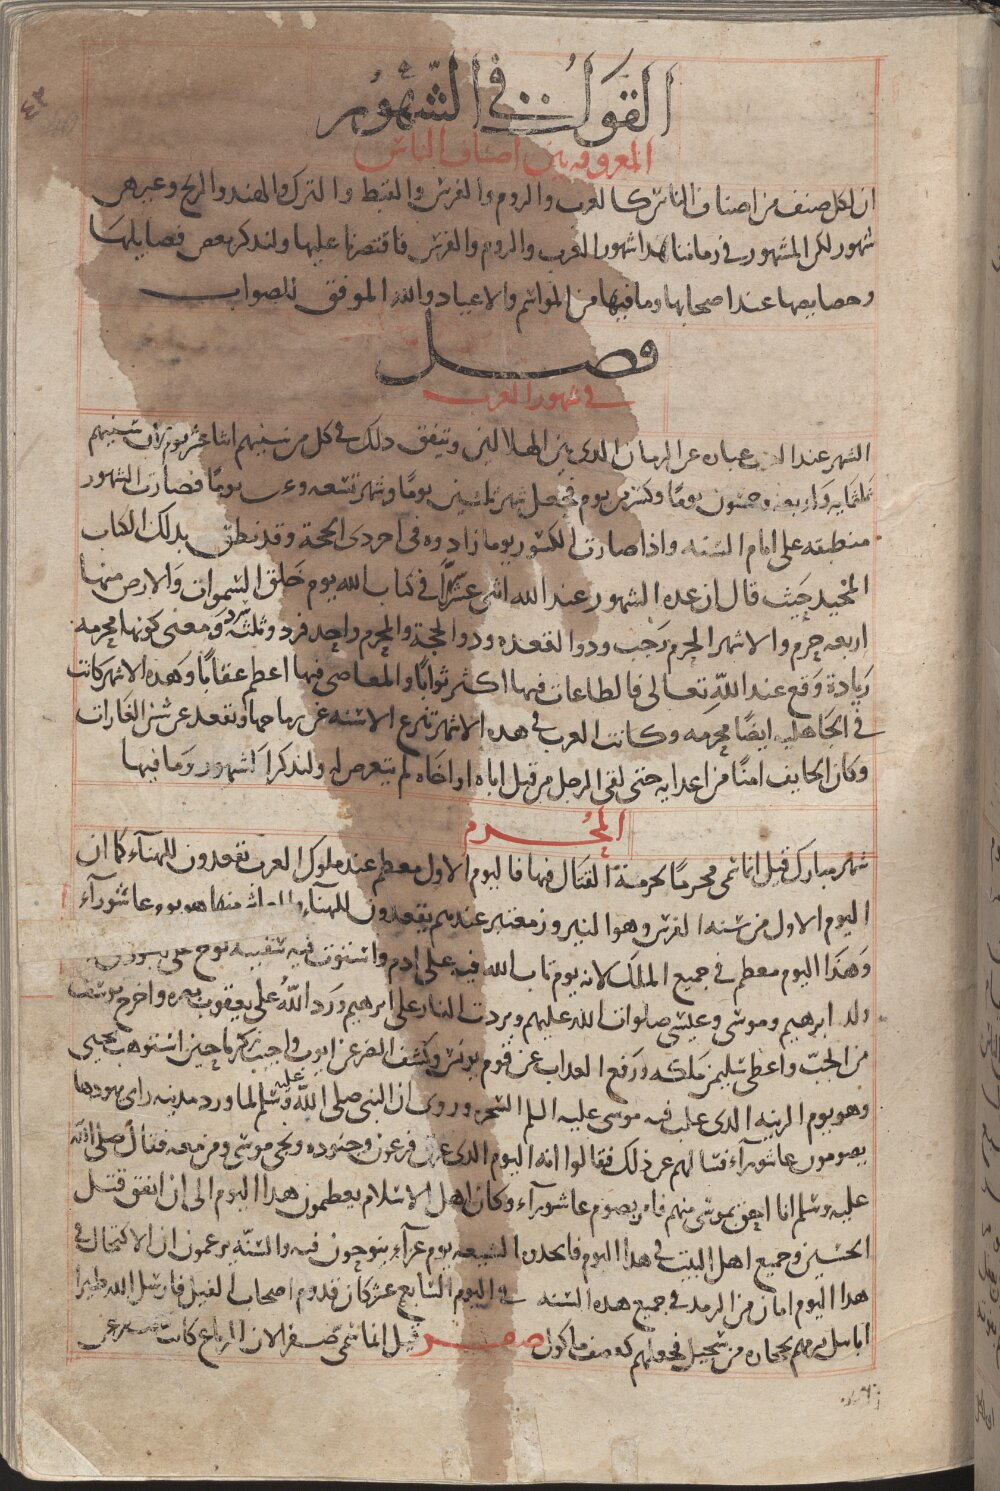 القول في الشهور
المعروفه بين اصناف الناس
ان لكل صنف من اصناف الناس كالعرب والروم والفرس والقبط والترك والهند والزنج وغيرهم
شهور لكن المشهور في زماننا هذا شهور العرب والروم والفرس فاقتصرنا عليها ولنذكر بعض فضايلها
وخصايصها عند اصحابها وما فيها من المواسم والاعياد والله الموفق للصواب
فصل
في شهور العرب
الشهر عند العرب عباره عن الزمان الذي بين الهلالين ويتفق ذلك في كل من سنيهم اثنا عشر يوم لان سنيهم
ثلثمايه واربعه وخمسون يومًا وكسر من يوم فجعل شهر ثلثين يومًا وشهر تسعه وعشرين يومًا فصارت الشهور
منطبقه على ايام السنه واذا صارت الكسور يوما زادوه في اخر ذي الحجة وقد نطق بذلك الكتاب
المجيد حيث قال ان عده الشهور عند الله اثنى عشر شهرًا في كتاب الله يوم خلق السموات والارض منها
اربعه حرم والاشهر الحرم رجب وذو القعده وذو الحجة والمحرم واحد فرد وثلثه سرد ومعنى كونها محرمه
زيادة وقع عند الله تعالى فالطاعات فيها اكثر ثوابًا والمعاصي فيها اعظم عقابًا وهذه الاشهر كانت
في الجاهليه ايضًا محرمه وكانت العرب في هذه الاشهر تنزع الاسنه عن رماحها وتقعد عن شن الغارات
وكان الخايف امنًا من اعدايه حتى لقي الرجل من قتل اباه او اخاه لم يتعرض له ولنذكر الشهور وما فيها
المحرم
شهر مبارك قيل انما سمي محرمًا لحرمة القتال فيها فاليوم الاول معظم عند ملوك العرب تقعدون للهناء كما ان
اليوم الاول من سنه الفرس وهو النيروز معتبر عندهم يقعدون للهناء والعاشر منها هو يوم عاشوراء
وهذا اليوم معظم في جميع الملل لانه يوم تاب الله فيه على ادم واستوت فيه سفينه نوح على الجودي
ولد ابرهيم وموسى وعيسى صلوات الله عليهم وبردت النار على ابرهيم ورد الله على يعقوب بصره واخرج يوسف
من الجبّ واعطى سليمن ملكه ورفع العذاب عن قوم يونس وكشف الضر عن ايوب واجيب زكريا حين استوهب يحيى
وهو يوم الزينه الذي غلب فيه موسى عليه السلم السحره وروى ان النبي صلى الله عليه وسلم لما ورد مدينه راى يهودها
يصومون عاشوراء فسالهم عن ذلك فقالوا انه اليوم الذي غرق فرعون وجنوده ونجى موسى ومن معه فقال صلى الله
عليه وسلم انا احق بموسى منهم فامر بصوم عاشوراء وكان اهل الاسلام يعظمون هذا اليوم الى ان اتفق قتل
الحسين وجميع اهل البيت في هذا اليوم فاتخذت الشيعه يوم عزاء ينوحون فيه والسنّه يزعمون ان الاكتحال في
هذا اليوم امان من الرمد في جميع هذه السنه في اليوم السابع عشر كان قدوم اصحاب الفيل فارسل الله طيرا
ابابيل ترميهم بحجاره من سجيل فجعلهم كعصف ماكول صفر قيل انما سمي صفر لان الرباع كانت تصفر عن